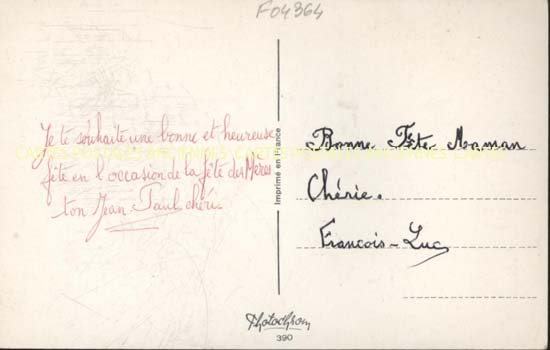 F04364
Je te souhaite une bonne et heureuse
fête en l'occasion de la fête des Mères
ton Jean-Paul chéri.
Imprimé en France
Bonne Fête Maman
Chérie.
Francois-Luc
Photochrom
390